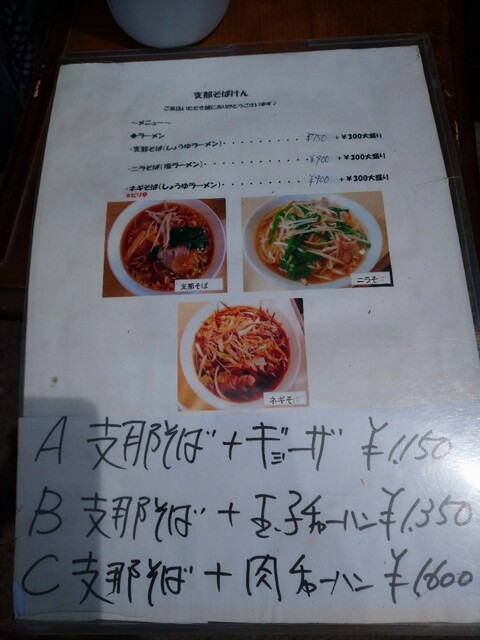 支那そばけん
ご来店いただき誠にありがとうございます♪
～メニュー～
◆ラーメン
・支那そば(しょうゆラーメン)・・・・・・・・・・ ¥750 +¥300大盛り
・ニラそば(塩ラーメン)・・・・・・・・・・・・ ¥900 +¥300大盛り
・ネギそば(しょうゆラーメン)・・・・・・・・・・ ¥900 +¥300大盛り
※ピリ辛
支那そば
ニラそば
ネギそば
A 支那そば+ギョーザ ¥1,150
B 支那そば+玉子チャーハン ¥1,350
C 支那そば+肉チャーハン ¥1,600